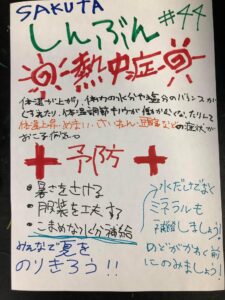 SAKUTA
しんぶん #44
熱中症
体温が上がり、体内の水分や塩分のバランスが
くずれたり、体温調節キノウが働かなくなったりして
体温上昇、めまい、けいれん、頭痛などの症状が
おこる病気。
予防
・暑さをさける
・服装を工夫する
・こまめな水分補給
水だけでなく
ミネラルも
補給しましょう!
のどがかわく前
にのみましょう!
みんなで夏を
のりきろう!!